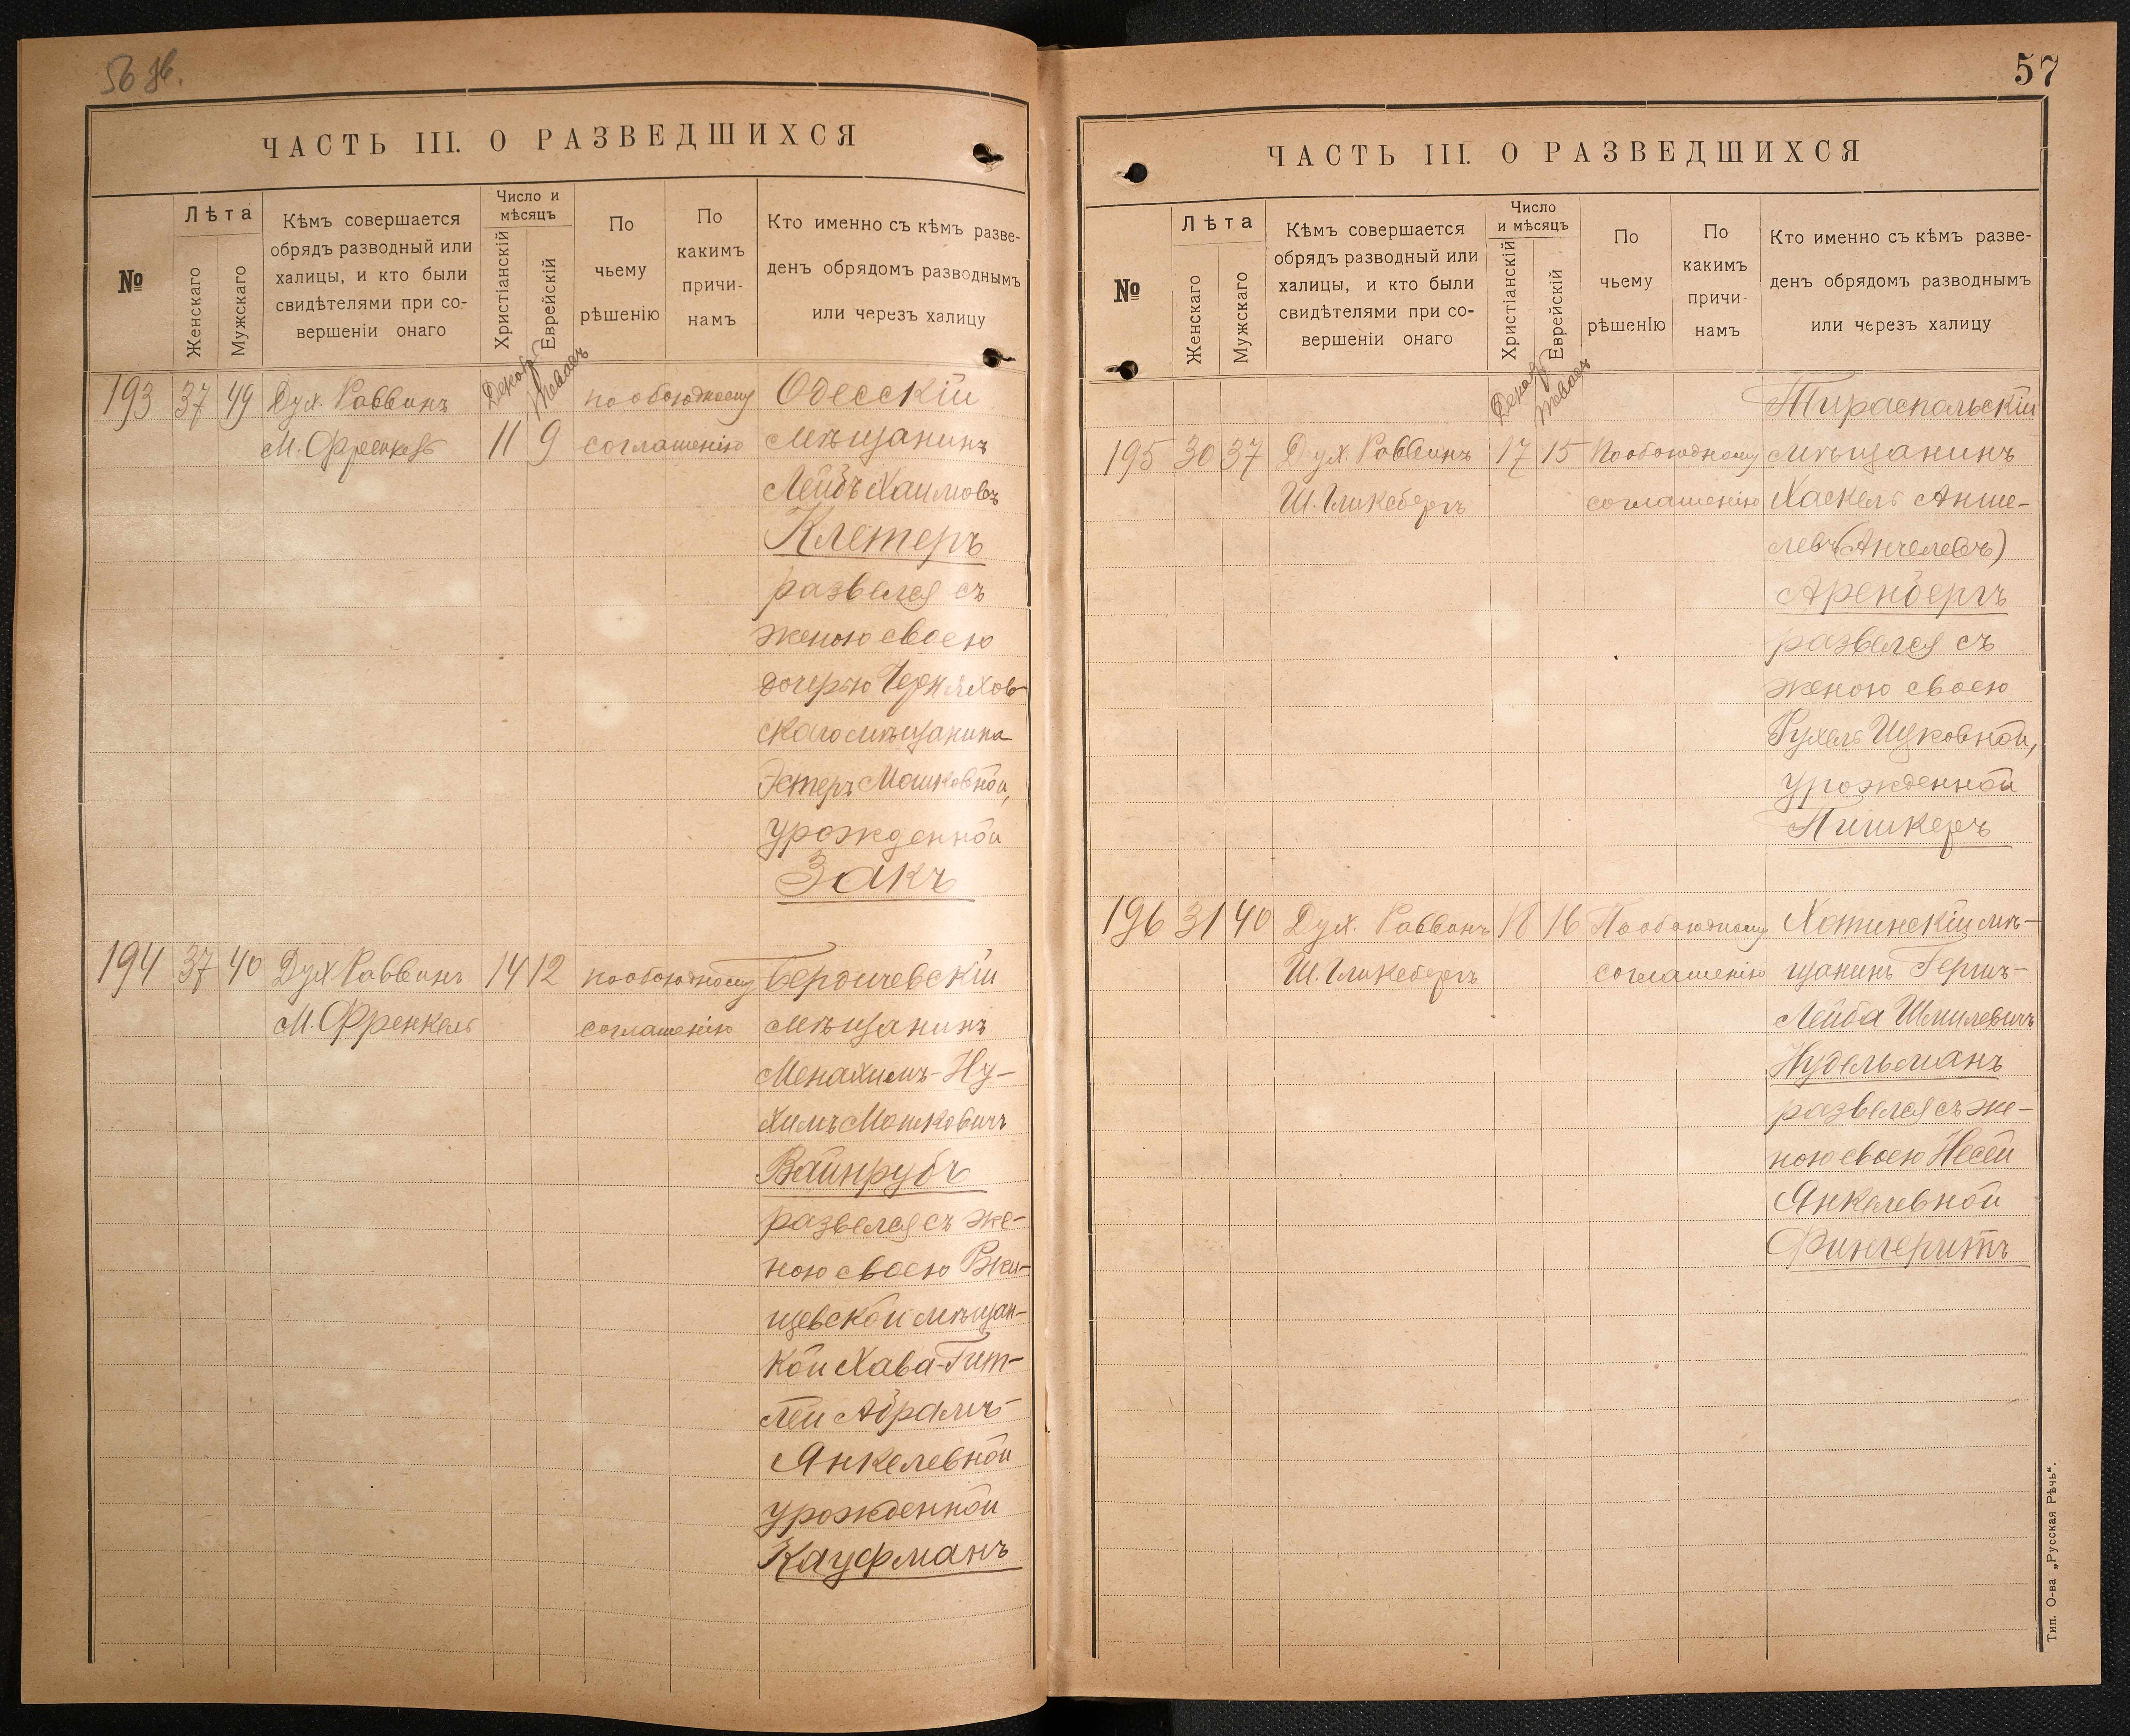 56 об.
ЧАСТЬ III. О РАЗВЕДШИХСЯ
№
Лѣта
Женскаго
Мужскаго
Кѣмъ совершается
обрядъ разводный или
халицы, и кто были
свидѣтелями при со-
вершеніи онаго
Число и
мѣсяцъ
Христіанскій
Еврейскій
По
чьему
рѣшенію
По
какимъ
причи-
намъ
Кто именно съ кѣмъ разве-
денъ обрядомъ разводнымъ
или черезъ халицу
193 37 49 Дух. Раввинъ Декабр Тевасъ по обоюдному Одесскій
М. Френкель 11 9 соглашенію мѣщанинъ
Лейбъ Хаимовъ
Клетеръ
развелся съ
женою своею
дочерью Черняхов-
скаго мѣщанина
Эстеръ Мошковной,
урожденной
Закъ
194 37 40 Дух Раввинъ 14 12 по обоюдному Бердичевскій
М. Френкель соглашенію мѣщанинъ
Менахимъ-Ну-
химъ Мошковичъ
Вайнрубъ
развелся съ же-
ною своею Ржи-
щевской мѣщан-
кой Хава-Гит-
лей Абрамъ-
Янкелевной
урожденной
Кауфманъ
57
ЧАСТЬ III. О РАЗВЕДШИХСЯ
№
Лѣта
Женскаго
Мужскаго
Кѣмъ совершается
обрядъ разводный или
халицы, и кто были
свидѣтелями при со-
вершеніи онаго
Число
и мѣсяцъ
Христіанскій
Еврейскій
По
чьему
рѣшенІю
По
какимъ
причи-
намъ
Кто именно съ кѣмъ разве-
денъ обрядомъ разводнымъ
или черезъ халицу
Декабр Тевасъ Тираспольскій
195 30 37 Дух. Раввинъ 17 15 По обоюдному мѣщанинъ
Ш. Гликсбергъ соглашенію Хаскель Анше-
левъ (Анчелевъ)
Аренбергъ
развелся съ
женою своею
Рухель Ицковной,
урожденной
Пишкеръ
196 31 40 Дух. Раввинъ 18 16 По обоюдному Хотинскій мѣ-
Ш. Гликсбергъ соглашенію щанинъ Гершъ-
Лейба Шмилевичъ
Нудельманъ
развелся съ же-
ною своею Несей
Янкелевной
Фингеритъ
Тип. О-ва „Русская Рѣчь“.